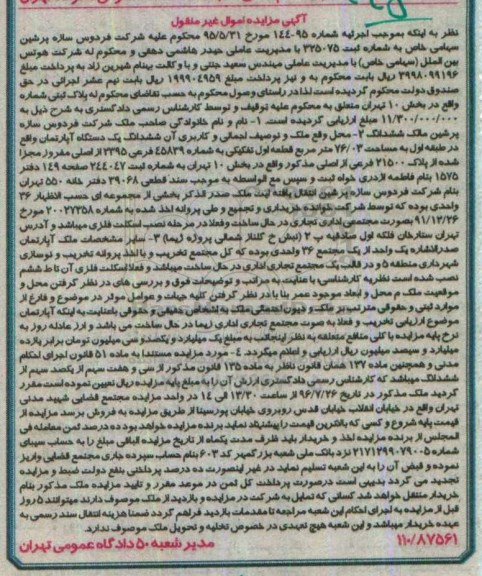 آگهی مزایده اموال غیر منقول
نظر به اینکه بموجب اجرائیه شماره ۹۵-۱۴۴ مورخ ۹۵/۵/۳۱ محکوم علیه شرکت فردوس سازه پرشین
سهامی خاص به شماره ثبت ۳۳۵۰۷۵ با مدیریت عاملی حیدر هاشمی دهقی و محکوم له شرکت هوتس
بین الملل (سهامی خاص) با مدیریت عاملی مهندس سعید جنتی و با وکالت بهنام شیرین زاد به پرداخت مبلغ
۳۹۹۸۰۹۹۱۹۶ ریال بابت محکوم به و نیز پرداخت مبلغ ۱۹۹۹۰۴۹۵۹ ریال بابت نیم عشر اجرائی در حق
صندوق دولت محکوم گردیده است لذا در راستای وصول محکوم به حسب تقاضای محکوم له پلاک ثبتی شماره
واقع در بخش ۱۰ تهران متعلق به محکوم علیه توقیف و توسط کارشناس رسمی دادگستری به شرح ذیل به
مبلغ ۱۱/۳۰۰/۰۰۰/۰۰۰ ارزیابی گردیده است. ۱- نام و نام خانوادگی صاحب ملک شرکت فردوس سازه
پرشین مالک ششدانگ ۲- محل وقع ملک و توصیف اجمالی و کاربری آن ششدانگ یک دستگاه آپارتمان واقع
در طبقه اول به مساحت ۷۶/۰۳ متر مربع قطعه اول تفکیکی به شماره ۴۵۸۳۹ فرعی ۲۳۹۵ از اصلی مفروز مجزا
شده از پلاک ۲۱۵۰۰ فرعی از اصلی مذکور واقع در بخش ۱۰ تهران به شماره ثبت ۲۴۴۰۴۷ صفحه ۱۴۹ دفتر
۱۵۷۵ بنام فاطمه اژدری خواه ثبت و سپس مع الواسطه به موجب سند قطعی ۳۹۰۶۸ دفتر خانه ۵۵۰ تهران
بنام شرکت فردوس سازه پرشین انتقال یافته ثبت ملک صدر الذکر بخشی از مجموعه ای حسب الاظهار ۳۶
واحدی بوده که توسط شرکت خوانده خریداری و تجمیع و طی پروانه اخذ شده به شماره ۲۰۰۲۷۳۵۸ مورخ
۹۱/۱۲/۲۶ بصورت مجتمعی اداری تجاری در حال ساخت وفعلا در مرحله نصب اسکلت فلزی میباشد و آدرس
تهران ستارخان فلکه اول صادقیه پ ۳ (نبش خ گلناز شمالی پروژه زیما) ۳- سایر مشخصات ملک آپارتمان
صدرالاشاره یک واحد از یک مجتمع ۳۶ واحدی بوده که کل مجتمع تخریب و با اخذ پروانه تخریب و نوسازی
شهرداری منطقه ۵ و در قالب یک مجتمع تجاری اداری در حال ساخت میباشد و فعلا اسکلت فلزی آن تا ط ششم
نصب شده است نظریه کارشناسی: با عنایت به مراتب و توضیحات فوق و بررسی های در نظر گرفتن محل و
موقعیت ملک م محل و ابعاد موجود عمر بنا با در نظر گرفتن کلیه جهات و عوامل موثر در موضوع و فارغ از
موارد ثبتی و حقوقی مترتب بر ملک و دیون احتمالی ملک به اشخاص حقیقی و حقوقی باعنایت به اینکه آپارتمان
موضوع ارزیابی تخریب و فعلا به صورت مجتمع تجاری اداری زیما در حال ساخت می باشد و ارز عادله روز به
نرخ پایه مزایده با کلی منافع متعلقه به نظر اینجانب به مبلغ یک میلیارد و یکصد و سی میلیون تومان برابر یازده
میلیارد و سیصد میلیون ریال ارزیابی و اعلام میگردد. ۴- مورد مزایده مستندا به ماده ۵۱ قانون اجرای احکام
مدنی و همچنین ماده ۱۳۷ همان قانون ناظر به ماده ۱۳۵ قانون مذکور از سی و هفت سهم از یکصد سهم از
ششدانگ میباشد که کارشناس رسمی دادگستری ارزش آن را به مبلغ پایه مزایده ریال تعیین نموده است مقرر
گردید ملک مذکور در تاریخ ۹۶/۷/۲۶ از ساعت ۱۳/۳۰ الی ۱۴ در واحد مزایده مجتمع قضایی شهید مدنی
تهران واقع در خیابان انقلاب خیابان قدس روبروی خیابان پورسینا از طریق مزایده به فروش برسد مزایده از
قیمت پایه شروع و کسی که بالاترین قیمت را پیشنهاد نماید برنده مزایده خواهد بود ده درصد ثمن معامله فی
المجلس از برنده مزایده اخذ و خریدار باید ظرف مدت یکماه از تاریخ مزایده الباقی مبلغ را به حساب سیبای
شماره ۲۱۷۱۲۹۹۰۷۹۰۰۵ نزد بانک ملی شعبه بزرگمهر کد ۶۰۳ بنام حساب سپرده جاری مجتمع قضایی واریز
نموده و قبض آن را به این شعبه تسلیم نماید در غیر اینصورت ده درصد پرداختی بنفع دولت ضبط و مزایده
تجدید می گردد بدیهی است درصورت پرداخت کل ثمن در موعد مقرر و تایید مزایده ملک مذکور بنام
خریدار منتقل خواهد شد کسانی که تمایل به شرکت در مزایده و بازدید از ملک موصوف دارند میتوانند ۵ روز
قبل از مزایده به اجرای احکام این شعبه مراجعه تا مقدمات بازدید فراهم گردد ضمنا هزینه انتقال سند رسمی به
عهده خریدار میباشد و این شعبه هیچ تعهدی در خصوص تخلیه و تحویل ملک موصوف ندارد.
۱۱۰/۸۷۵۶۱ مدیر شعبه ۵۰ دادگاه عمومی تهران